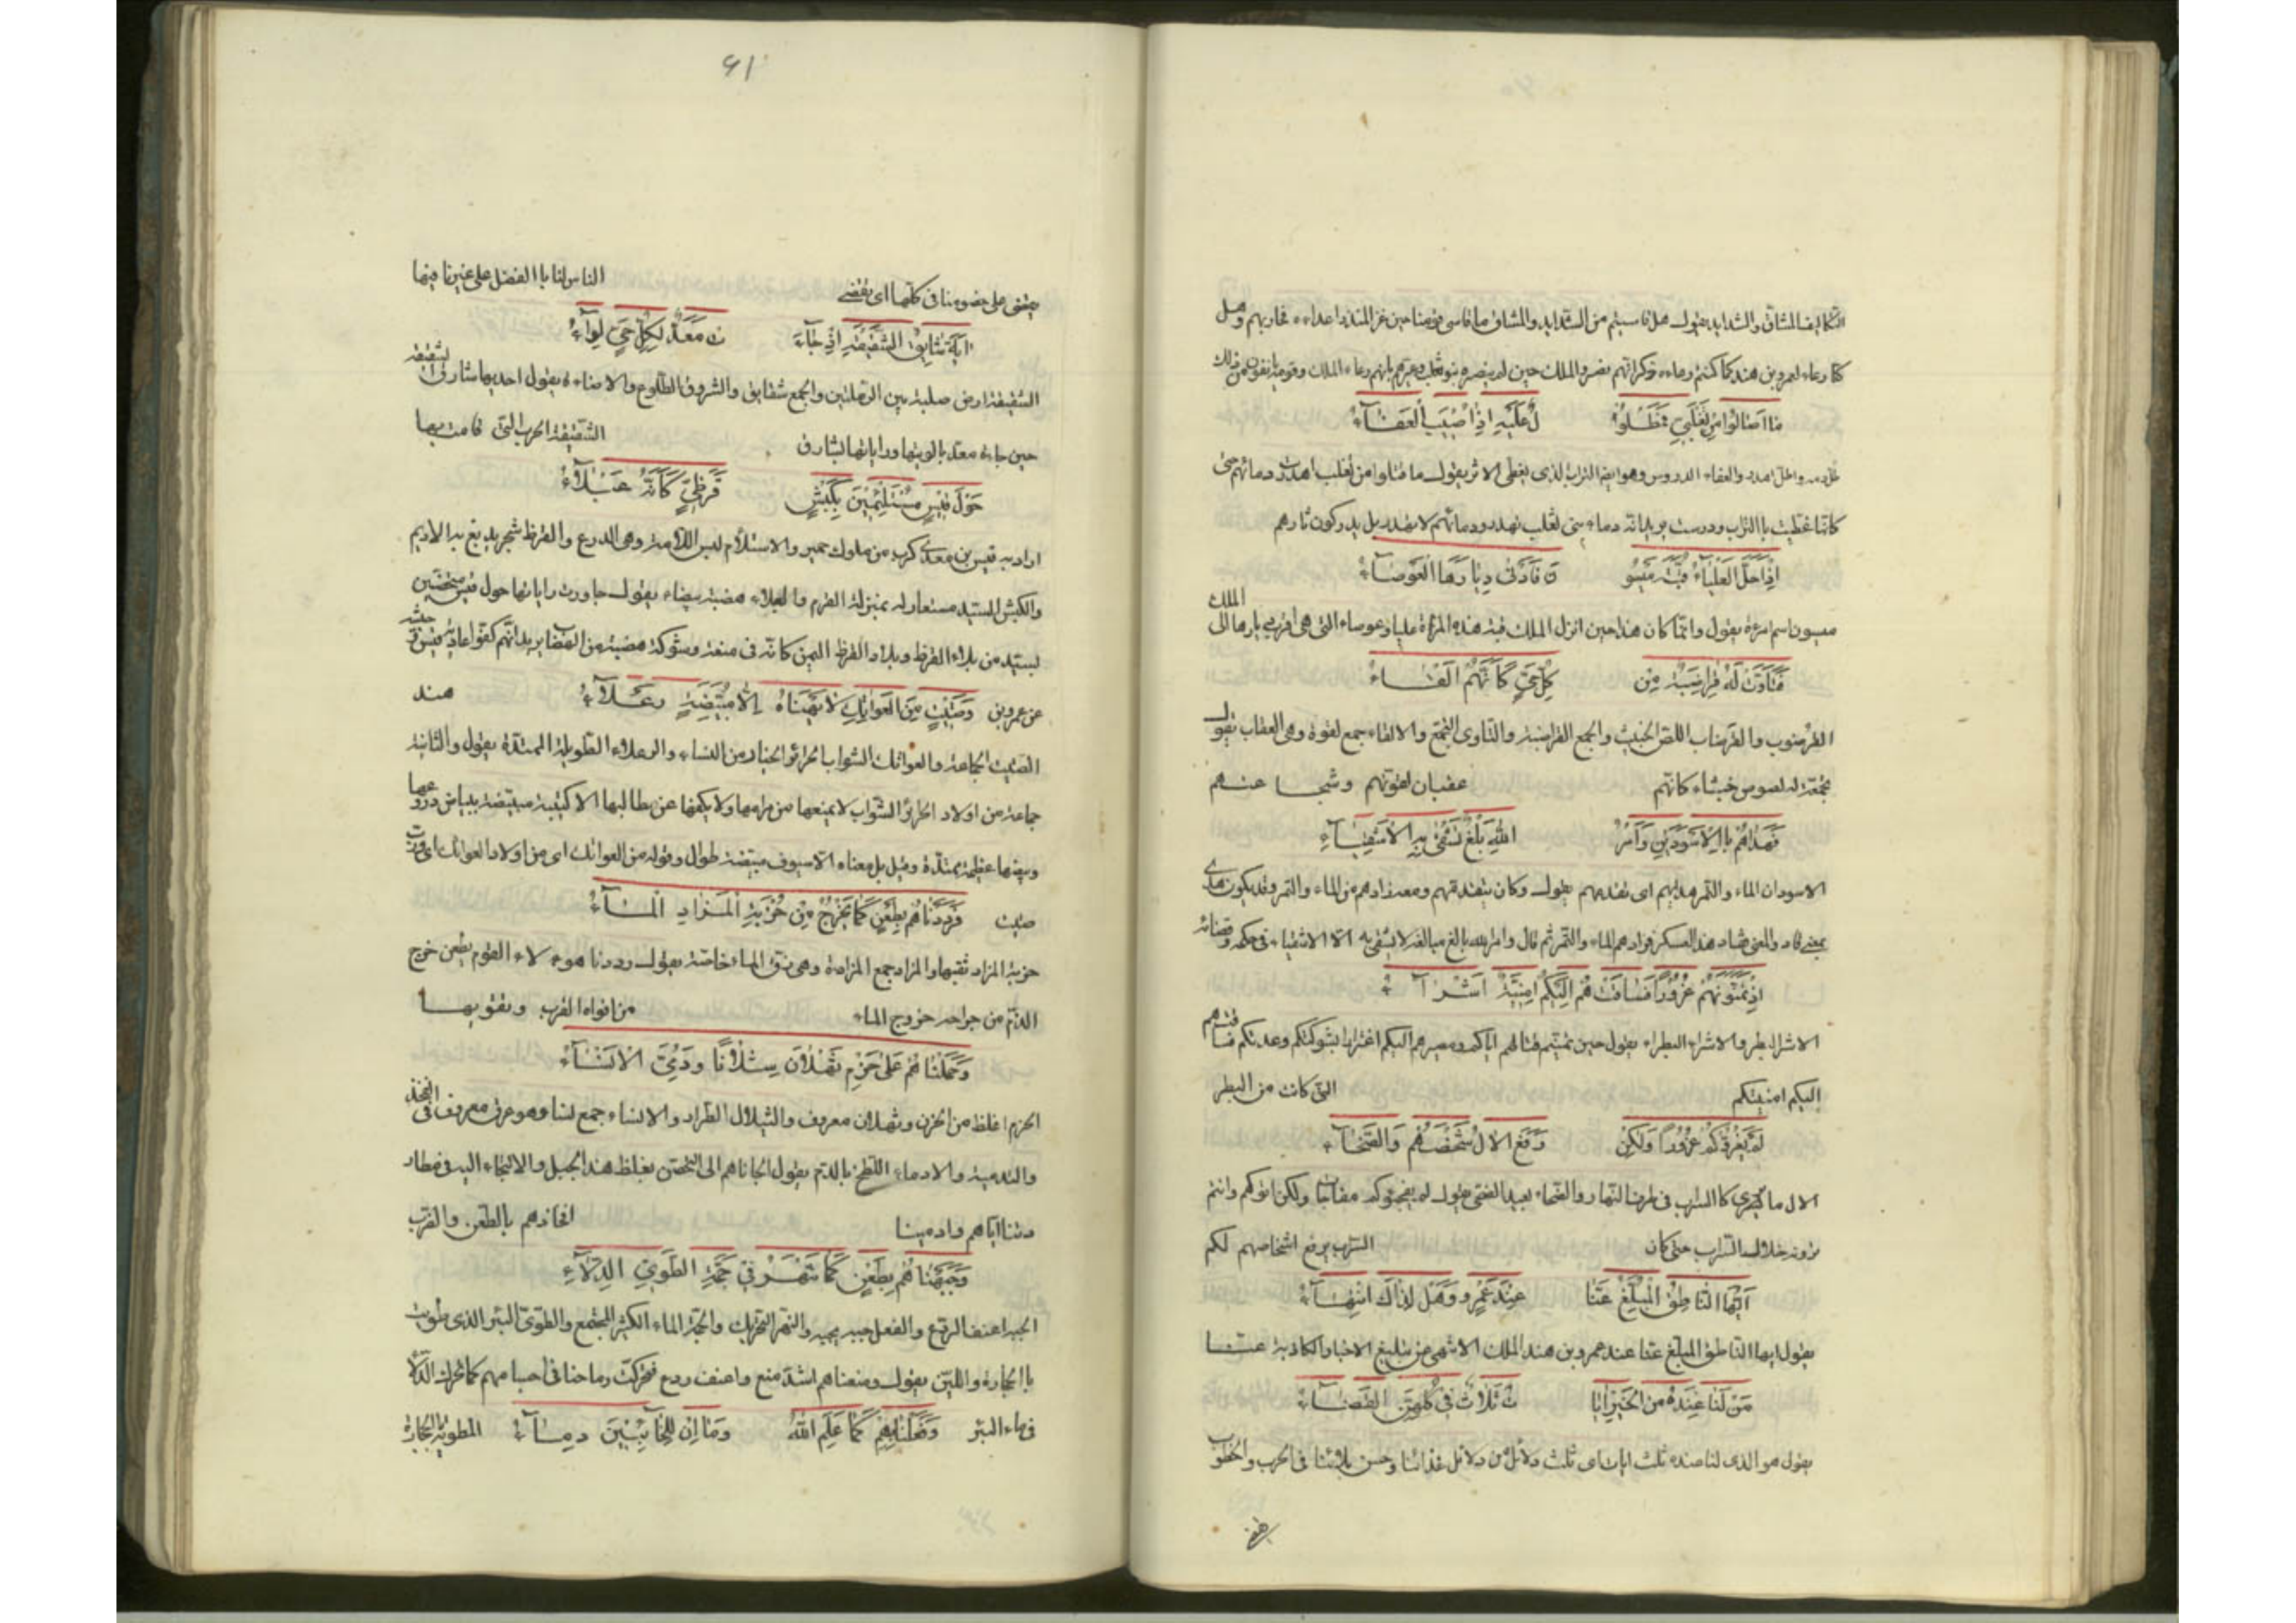 التكاليف المشاق والشدايد يقول هل قاسيتم من الشدايد والمشاق ما قاسى قومنا حين غز المنذر اعداءه فحاربهم وهل
كنا رعاء لعمرو بن هند كما كنتم رعاءه ذكر انهم نصروا الملك حين لم ينصره بنو تغلب وعيرهم بانهم رعاء الملك وقومه يانفون من ذلك
ما اصابوا من تغلبي فمطلو ل عليه اذا اصيب العفاء
طل دمه واطل اهدر والعفاء الدروس وهو ايضا التراب الذى يغطى الاثر يقول ما قتلوا من تغلب اهدرت دمائهم حتى
كانها غطيت باالتراب ودرست يريد انه دماء بنى تغلب تهدر ودمائهم لا تهدر بل يدركون ثارهم
اذ احل العلياء قبة ميسو ن فادنى ديارها العوصاء
ميسون اسم امرءة يقول وانما كان هذا حين انزل الملك قبة هذه المرءة علياء وعوصاء التى هى اقرب ديارها الى الملك
فتاوت له قراضبة من كل حي كانهم القاء
القرضوب والقرضاب اللص الخبيث والجمع القراضبة والتاوى التجمع والالقاء جمع لقوة وهى العقاب يقول
تجمعت له لصوص خبثاء كانهم عقبان لقوتهم وشجا عتهم
فهداهم باالاسودين وامر الله بلغ تشقى به الاشقياء
الاسودان الماء والتمر هديهم اى تقدمهم يقول وكان يتقدمهم ومعه زادهم من الماء والتمر وقد يكون هدى
بمعنى قاد والمعنى فقاد هذا العسكر وزادهم الماء والتمر ثم قال وامر الله بالغ مبالغه لا يشقى به الا الاشقياء فى حكمه وقضائه
اذ تمنونهم غرورا فساقت هم اليكم امنية اشراء
الاشر البطر والاشراء البطراء يقول حين تمنيتم قتالهم اياكم ومصيرهم اليكم اغترارا بشوكتكم وعدتكم فساقتهم
اليكم امنيتكم التى كانت من البطر
لم يغروكم غرورا ولكن رفع الال شخصهم والضحاء
الال ما يرى كا السراب فى طرفى النهار والضحاء بعيد الضحى يقول لم يفجئوكم مفاجاة ولكن اتوكم وانتم
ترونهم خلال السراب حتى كان السراب يرفع اشخاصهم لكم
ايها الناطق المبلغ عنا عند عمرو وهل لذاك انتهاء
يقول ايها الناطق المبلغ عنا عند عمرو بن هند الملك الا تنتهى من تبليغ الاخبار الكاذبة عنا
من لنا عنده من الخير ايا ت ثلاث في كلهن القضاء
يقول هو الذى لنا عنده ثلث ايات اى ثلث دلائل من دلائل غنائنا وحسن بلائنا فى الحرب والخطوب
يقضى
٦١
يقضى على خصومنا فى كلها اى يقضى الناس لنا باالفضل على غيرنا فيها
اية شارق الشقيقة اذ جاء ت معد لكل حي لواء
الشقيقة ارض صلبة بين الرملتين والجمع شقايق والشروق الطلوع والاضاءة يقول احديها شارق الشقيقة
حين جاءت معد بالويتها وراياتها بشارق الشقيقة الحرب التى قامت بها
حول قيس مستلئمين بكبش قرظي كانه عبلاء
اراد به قيس بن معدى كرب من ملوك حمير والاستلام لبس اللامة وهى الدرع والقرظ شجر يدبغ به الاديم
والكبش السيد مستعار له بمنزلة القرم والعبلاء هضبة بيضاء يقول جاءوت راياتها حول قيس متحصنين
بسيد من بلاد القرظ وبلاد القرظ اليمن كانه فى منعته وشوكته هضبة من الهضاب يريد انهم كفوا عادية قيس وجيشه
عن عمرو بن وصتيت من العواتك لا تنهاه الا مبيضة رعلاء هند
الصتيت الجماعة والعواتك الشواب الحرائر الخيار من النساء والرعلاء الطويلة الممتدة يقول والثانية
جماعة من اولاد الحرائر الشواب لا يمنعها من مرامها ولا يكفها عن مطالبها الا كتيبة مبيضة ببياض دروعها
وبيضها عظيمة ممتدة وقيل بل معناه الا سيوف مبيضة طوال وقوله من العواتك اى من اولاد العواتك اى وردت
صتيت فرددناهم بطعن كما يخرج من خربة المزاد الماء
خربة المزاد ثقبها والمزاد جمع المزادة وهى زق الماء خاصة يقول رددنا هوءلاء القوم بطعن خرج
الدم من جراحه خروج الماء من افواه القرب وثقوبها
وحملناهم على حزم ثهلان شلالا ودمي الانساء
الحزم اغلظ من الحزن وثهلان معروف والشلال الطراد والانساء جمع نسا وهو عرق معروف فى الفخذ
والتدمية والادماء اللطخ بالدم يقول الجاناهم الى التحصن بغلظ هذا الجبل والالتجاء اليه فى مطار
دتنا اياهم وادمينا افخاذهم بالطعن والضرب
وجبهناهم بطعن كما تنهز في جمة الطوي الدلاء
الجبه اعنف الردع والفعل جبه يجبه والنهز التحريك والجمة الماء الكثير المجتمع والطوى البئر الذى طويت
باالحجارة واللبن يقول ومنعناهم اشد منع واعنف ردع فتحركت رماحنا فى اجسامهم كما تحرك الدلاء
فى ماء البئر وفعلنا بهم كما علم الله وما ان للحائنين دماء المطوية بالحجارة